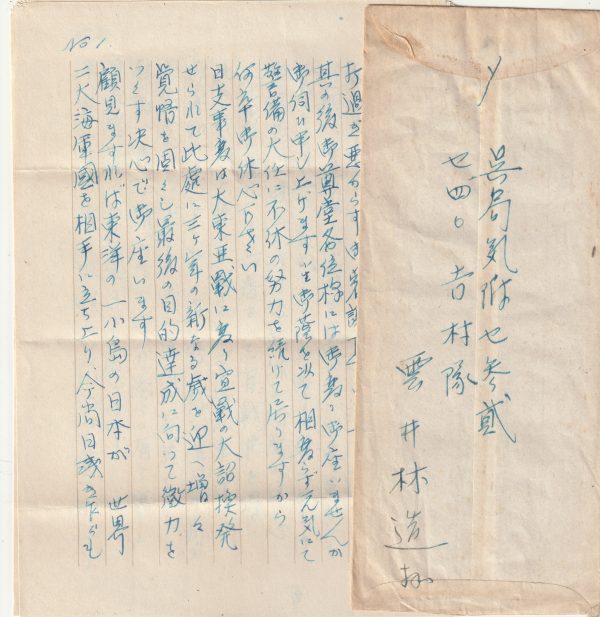 呉局気附セ参貳
セ四〇 吉村隊
雲井林造拝
No 1.
打過ぎ悪からず御
其の後御尊堂各位様には御変り御座いませんか
御伺ひ申し上げます 小生御蔭を以て相変らず元気にて
警備の大任に不休の努力を続けて居りますから
何卒御休心下さい
日支事変は大東亜戦に変り宣戦の大詔換発
せられて此處に三ヶ年の新なる歳を迎へ増々
覚悟を固くし最後の目的達成に向って微力を
つくす決心で御座います
顧見ますれば東洋の一小島の日本が 世界
二大海軍國を相手に立ち上り、今尚日浅き乍らも